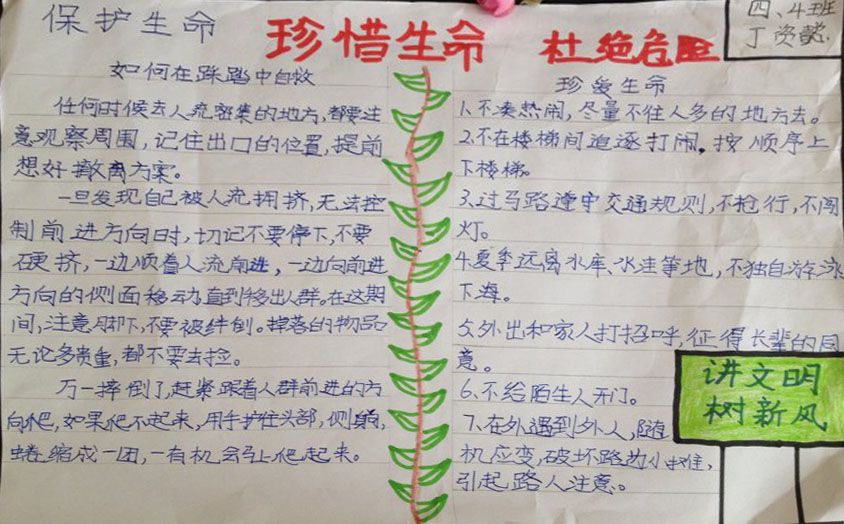 保护生命
珍惜生命 杜绝危险
四、4班
丁资懿
如何在踩踏中自救
任何时候去人流密集的地方,都要注
意观察周围,记住出口的位置,提前
想好撤离方案。
一旦发现自己被人流拥挤,无法控
制前进方向时,切记不要停下,不要
硬挤,一边顺着人流前进,一边向前进
方向的侧面移动,直到移出人群,在这期
间,注意脚下,不要被绊倒。掉落的物品
无论多贵重,都不要去捡。
万一摔倒了,赶紧跟着人群前进的方
向爬,如果爬不起来,用手护住头部,侧躺,
蜷缩成一团,一有机会马上爬起来。
珍爱生命
1.不凑热闹,尽量不往人多的地方去。
2.不在楼梯间追逐打闹。按顺序上
下楼梯。
3.过马路遵守交通规则,不抢行,不闯
灯。
4.夏季远离水库、水洼等地,不独自游泳
下海。
5.外出和家人打招呼,征得长辈的同
意。
6.不给陌生人开门。
7.在外遇到外人,随
机应变,破坏路边小摊,
引起路人注意。
讲文明
树新风